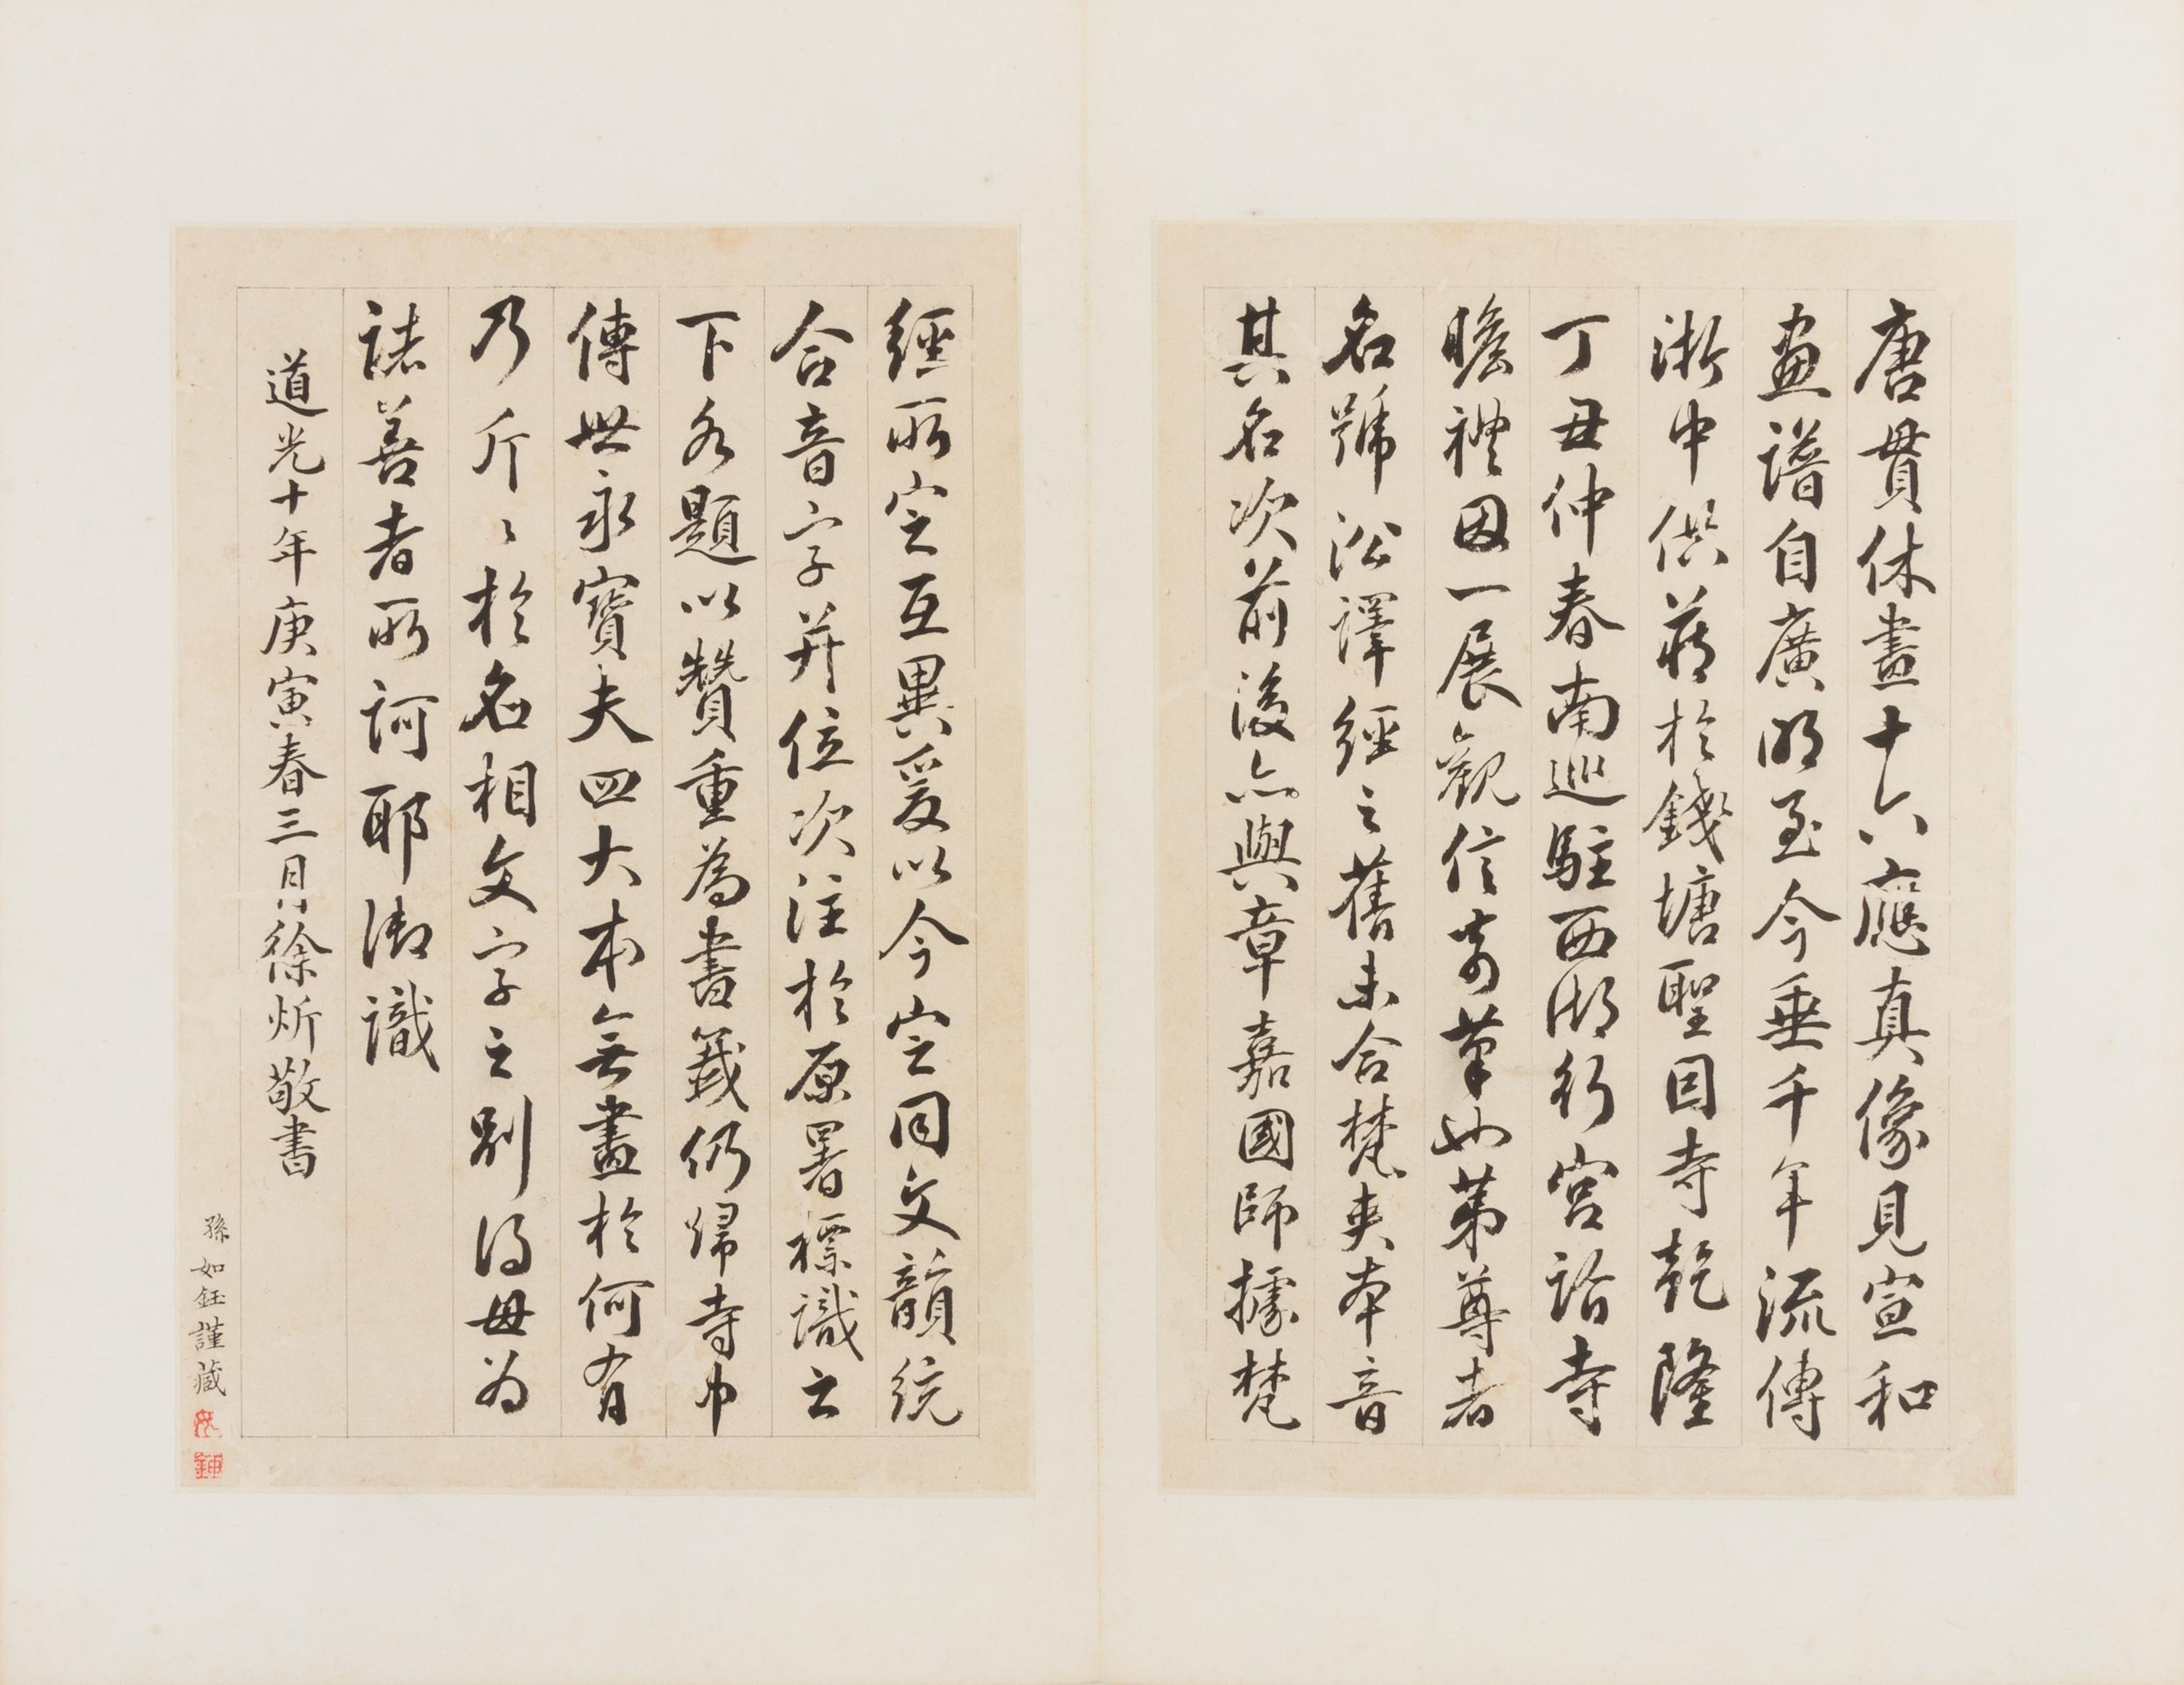 唐貫休畫十六應真像見宣和
畫譜自廣明至今垂千年流傳
浙中供藏於錢塘聖因寺乾隆
丁丑仲春南巡駐西湖行宮詣寺
瞻禮因一展觀信奇筆也第尊者
名號沿譯經之舊未合梵夾本音
其名次前後亦與章嘉國師據梵
經所定互異爰以今定同文韻統
合音字并位次注於原署標識之
下各題以贊重為書籤仍歸寺中
傳世永寶夫四大本無畫於何有
乃斤〻於名相文字之別得毋為
諸善者所訶耶御識
道光十年庚寅春三月徐炘敬書
孫如鈺謹藏